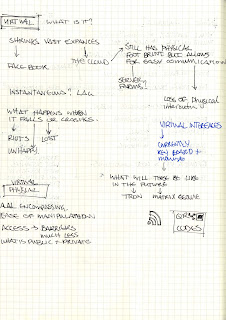 VIRTUAL WHAT IS IT?
SHRINKS VAST EXPANCES
FACE BOOK
THE CLOUD
STILL HAS PHYSICAL
FOOT PRINT BUT ALLOWS
FOR EASY COMMUNICATION
SERVER
FARMS.
LOSS OF PHYSICAL
INSTANTANEOUS, LAG
WHAT HAPPENS WHEN
IT FAILS OR CRASHES.
RIOTS LOST
UNHAPPY.
VIRTUAL INTERFACES
CURRENTLY
KEYBOARD +
MOUSE
WHAT WILL THESE BE LIKE
IN THE FUTURE
TRON MATRIX
VIRTUAL
PHYSICAL
ALL ENCOMPASSING.
EASE OF MANIPULATION
ACCESS + BARRIERS
MUCH LESS
WHAT IS PUBLIC + PRIVATE
QR
CODES